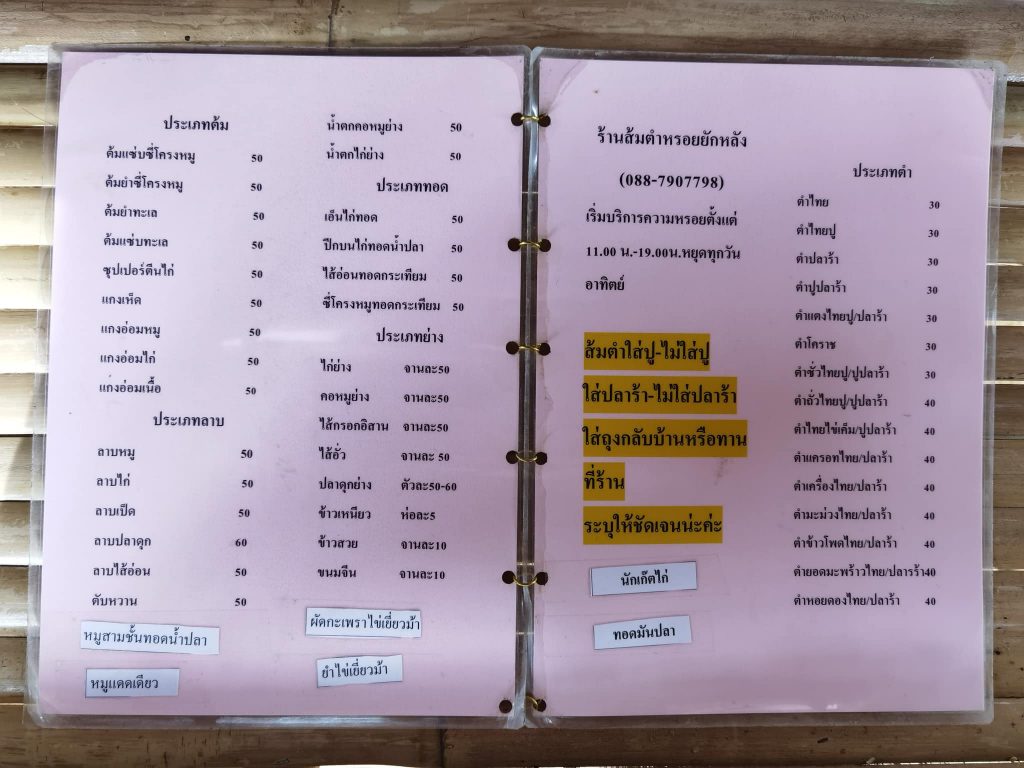 ประเภทต้ม
ต้มแซ่บซี่โครงหมู 50
ต้มยำซี่โครงหมู 50
ต้มยำทะเล 50
ต้มแซ่บทะเล 50
ซุปเปอร์ตีนไก่ 50
แกงเห็ด 50
แกงอ่อมหมู 50
แกงอ่อมไก่ 50
แก่งอ่อมเนื้อ 50
ประเภทลาบ
ลาบหมู 50
ลาบไก่ 50
ลาบเป็ด 50
ลาบปลาดุก 60
ลาบไส้อ่อน 50
ตับหวาน 50
หมูสามชั้นทอดน้ำปลา
หมูแดดเดียว
น้ำตกคอหมูย่าง 50
น้ำตกไก่ย่าง 50
ประเภททอด
เอ็นไก่ทอด 50
ปีกบนไก่ทอดน้ำปลา 50
ไส้อ่อนทอดกระเทียม 50
ซี่โครงหมูทอดกระเทียม 50
ประเภทย่าง
ไก่ย่าง จานละ50
คอหมูย่าง จานละ50
ไส้กรอกอิสาน จานละ50
ไส้อั่ว จานละ 50
ปลาดุกย่าง ตัวละ50-60
ข้าวเหนียว ห่อละ5
ข้าวสวย จานละ10
ขนมจีน จานละ10
ผัดกะเพราไข่เยี่ยวม้า
ยำไข่เยี่ยวม้า
ร้านส้มตำหรอยยักหลัง
(088-7907798)
เริ่มบริการความหรอยตั้งแต่
11.00 น.-19.00น.หยุดทุกวัน
อาทิตย์
ส้มตำใส่ปู-ไม่ใส่ปู
ใส่ปลาร้า-ไม่ใส่ปลาร้า
ใส่ถุงกลับบ้านหรือทาน
ที่ร้าน
ระบุให้ชัดเจนน่ะค่ะ
นักเก๊ตไก่
ทอดมันปลา
ประเภทตำ
ตำไทย 30
ตำไทยปู 30
ตำปลาร้า 30
ตำปูปลาร้า 30
ตำแตงไทยปู/ปลาร้า 30
ตำโคราช 30
ตำซั่วไทยปู/ปูปลาร้า 30
ตำถั่วไทยปู/ปูปลาร้า 40
ตำไทยไข่เค็ม/ปูปลาร้า 40
ตำแครอทไทย/ปลาร้า 40
ตำเครื่องไทย/ปลาร้า 40
ตำมะม่วงไทย/ปลาร้า 40
ตำข้าวโพดไทย/ปลาร้า 40
ตำยอดมะพร้าวไทย/ปลารร้า40
ตำหอยดองไทย/ปลาร้า 40